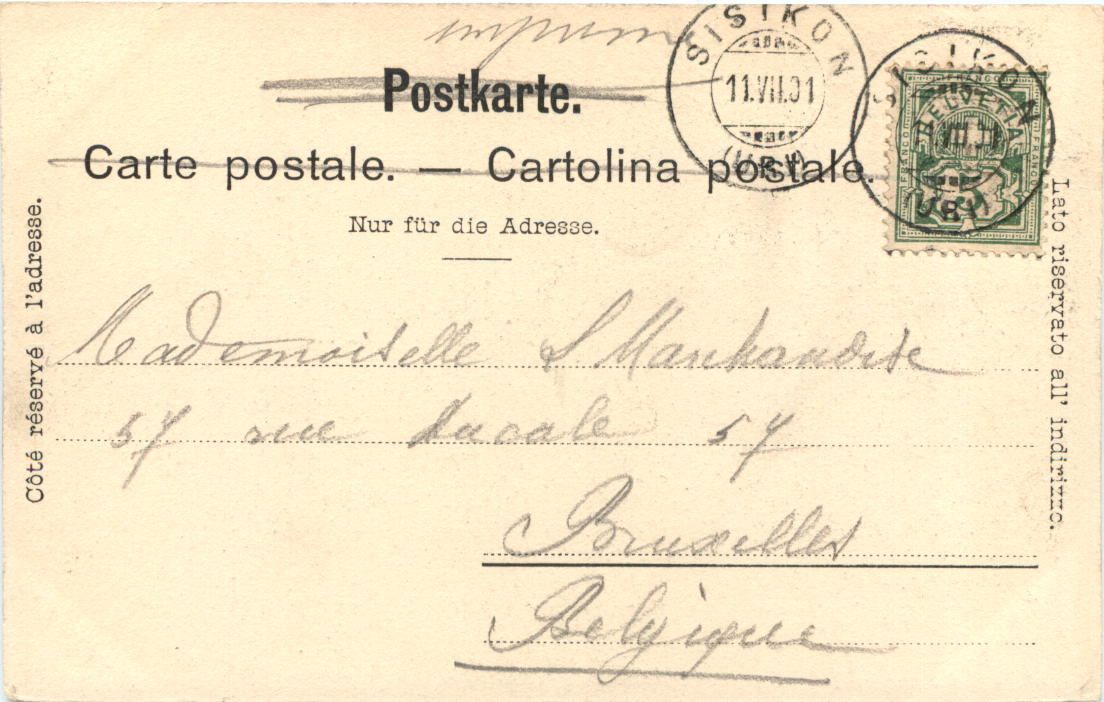 imprimé
Postkarte.
Carte postale. — Cartolina postale.
Nur für die Adresse.
Côté réservé à l'adresse.
Lato riservato all' indirizzo.
SISIKON
11.VII.01
(URI)
SISIKON
(URI)
FRANCO
HELVETIA
Mademoiselle S Marchandise
57 rue ducale 57
Bruxelles
Belgique